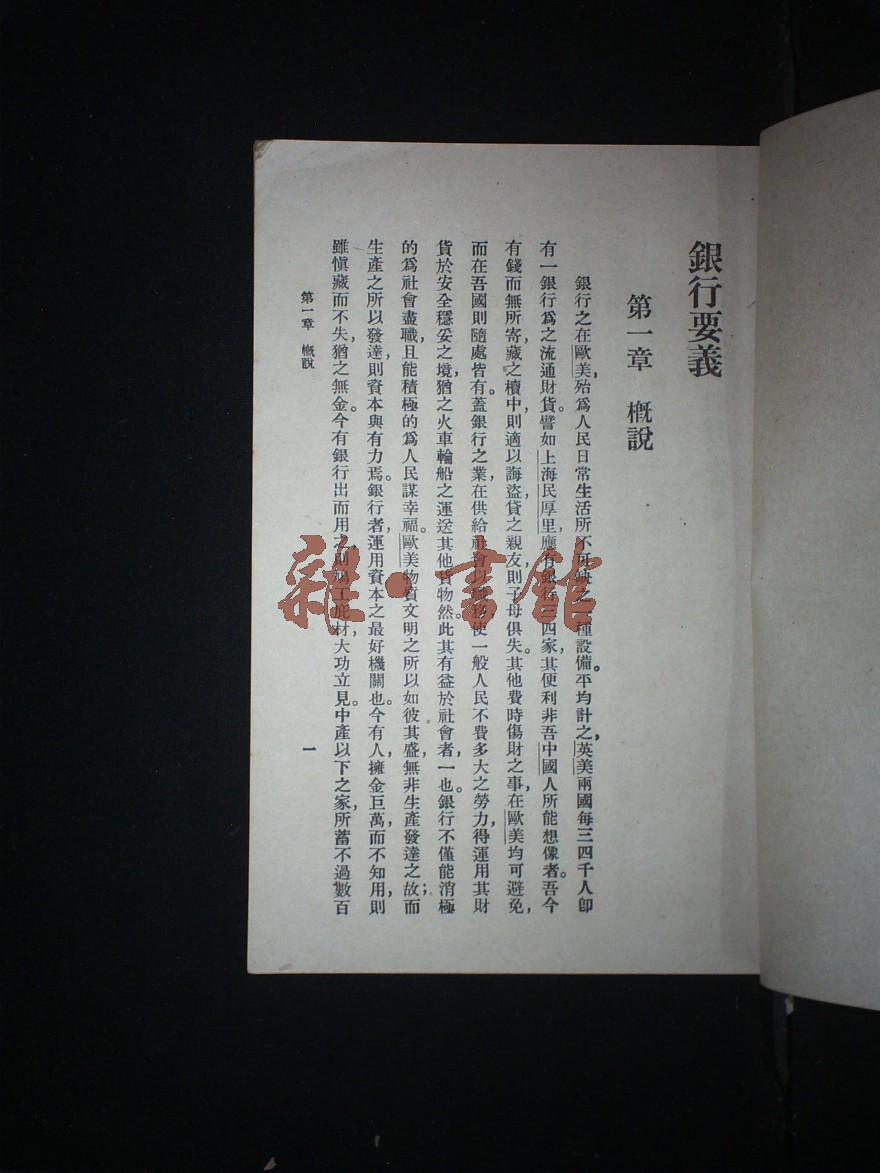 銀行要義
第一章 概說
銀行之在歐美，殆爲人民日常生活所不可缺之一種設備。平均計之，英美兩國每三四千人卽
有一銀行爲之流通財貨。譬如上海民厚里，應有銀行三四家，其便利非吾中國人所能想像者。吾今
有錢而無所寄，藏之櫝中，則適以誨盜，貸之親友，則子母俱失。其他費時傷財之事，在歐美均可避免，
而在吾國則隨處皆有。蓋銀行之業，在供給社會以職務，使一般人民不費多大之勞力，得運用其財
貨於安全穩妥之境，猶之火車輪船之運送其他貨物然。此其有益於社會者，一也。銀行不僅能消極
的爲社會盡職，且能積極的爲人民謀幸福。歐美物質文明之所以如彼其盛，無非生產發達之故；而
生產之所以發達，則資本與有力焉。銀行者，運用資本之最好機關也。今有人，擁金巨萬，而不知用，則
雖愼藏而不失，猶之無金。今有銀行出而用之，則鳩工庇材，大功立見。中產以下之家，所蓄不過數百
第一章 概說
一
雜·書館